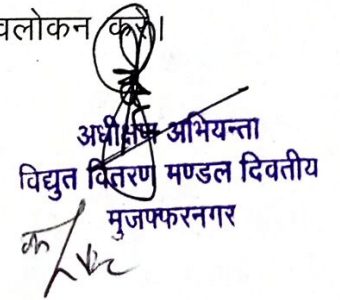 वलोकन करें।
अधीक्षण अभियन्ता
विद्युत वितरण मण्डल दिवतीय
मुजफ्फरनगर